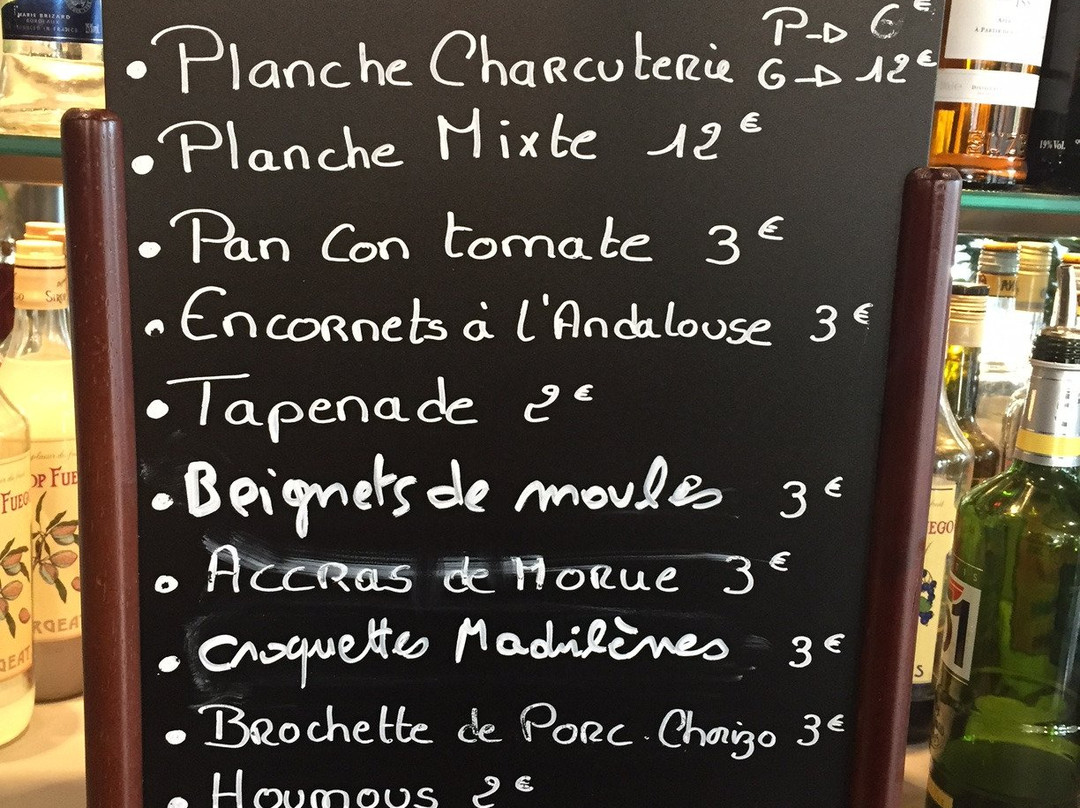 • Planche Charcuterie P→ 6€
G→ 12€
• Planche Mixte 12€
• Pan Con tomate 3€
• Encornets à l'Andalouse 3€
• Tapenade 2€
• Beignets de moules 3€
• Accras de Morue 3€
• Croquettes Madrilènes 3€
• Brochette de Porc. Chorizo 3€
• Houmous 2€
MARIE BRIZARD
19% Vol.
51